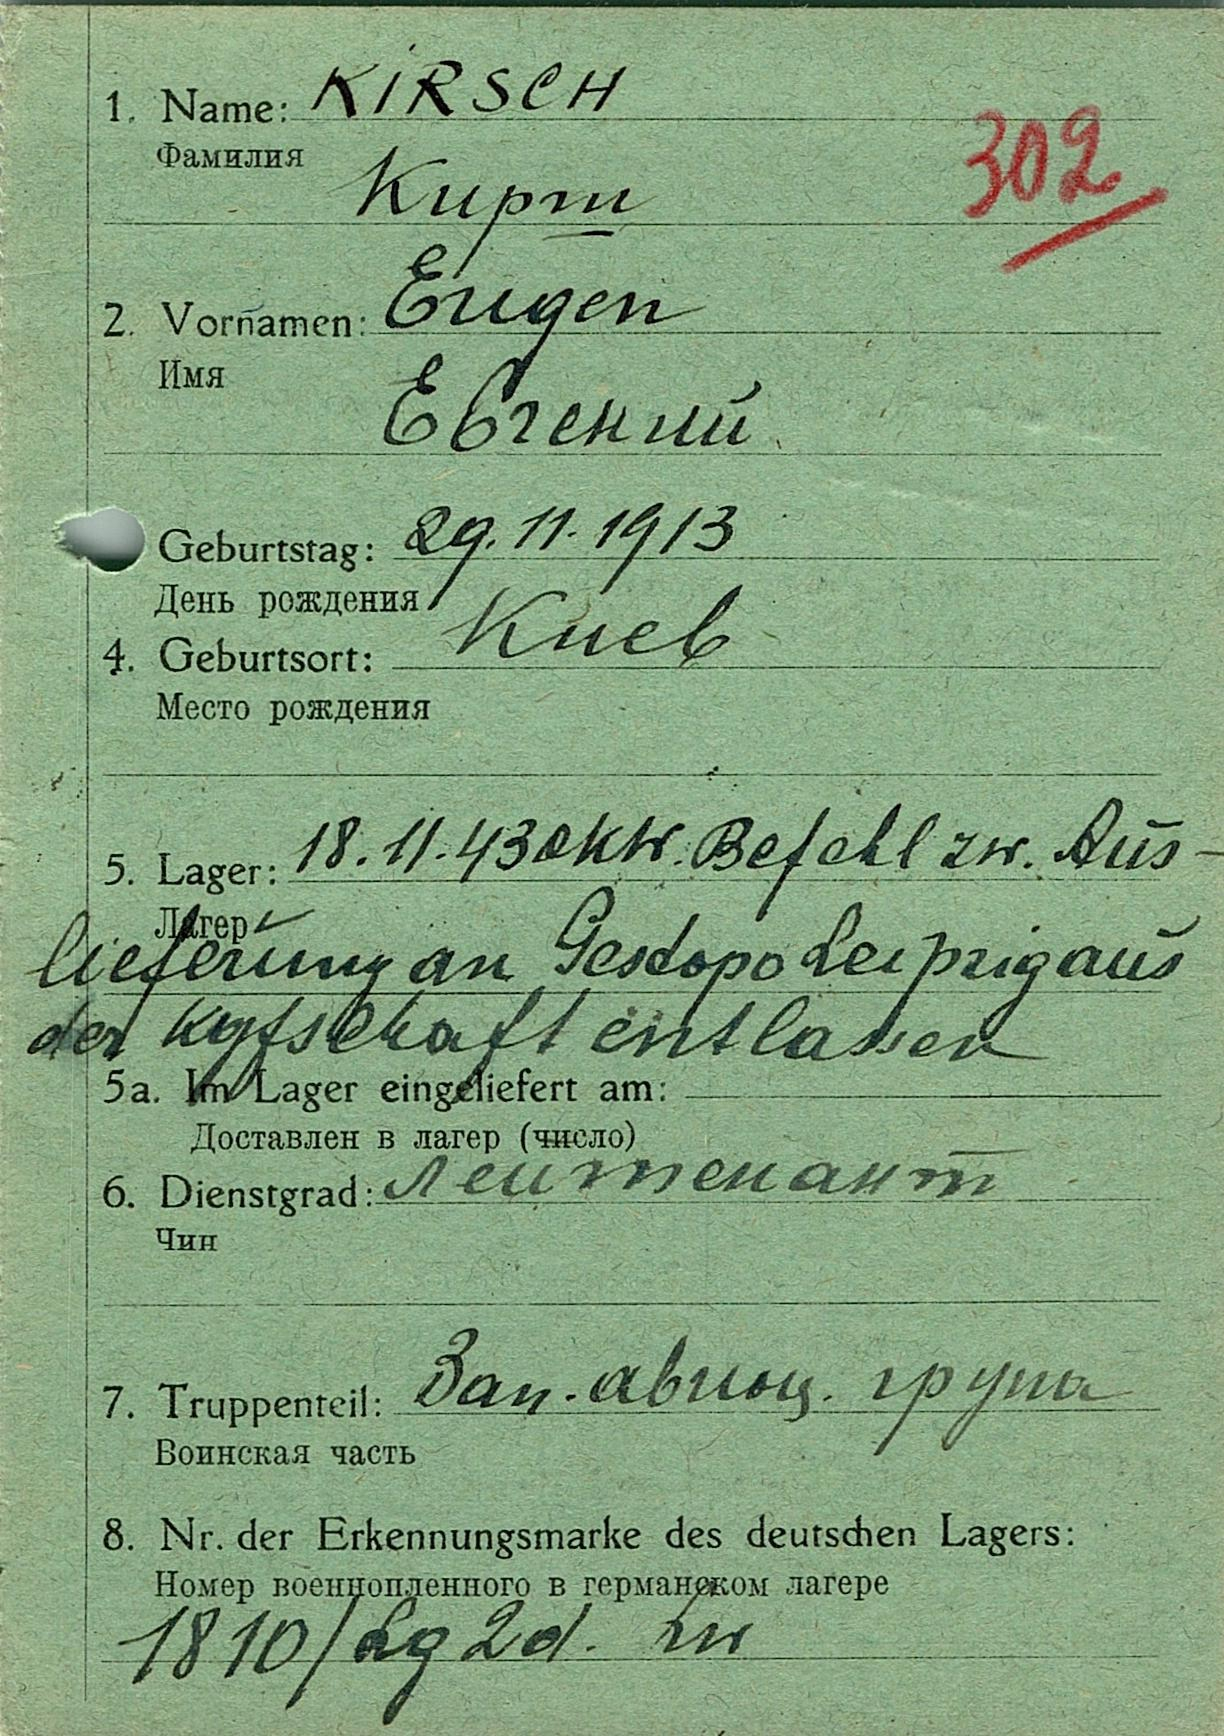 1. Name: KIRSCH
Фамилия
302
Кирш
2. Vornamen: Eugen
Имя
Евгений
Geburtstag: 29.11.1913
День рождения
4. Geburtsort: Киев
Место рождения
5. Lager: 18.11.43 OKW. Befehl zw. Aus-
Лагер
lieferung an Gestapo Leipzig aus
der Kgfschaft entlassen
5a. Im Lager eingeliefert am:
Доставлен в лагер (число)
6. Dienstgrad: Лейтенант
Чин
7. Truppenteil: Зап. авиац. група
Воинская часть
8. Nr. der Erkennungsmarke des deutschen Lagers:
Номер военнопленного в германском лагере
1810/Lg 2 d. Lw